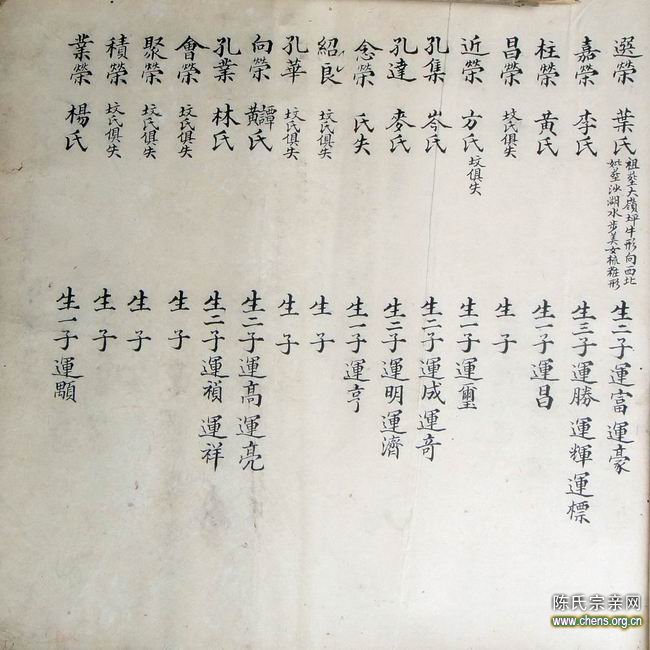 選榮 葉氏 祖塟大嶺坪牛形向西北 妣塟沙湖水步美女梳粧形 生二子運富運豪
嘉榮 李氏 生三子運勝運輝運標
柱榮 黃氏 生一子運昌
昌榮 坟氏俱失 生 子
近榮 方氏 坟俱失 生一子運璽
孔集 岑氏 生二子運成運奇
孔達 麥氏 生二子運明運濟
念榮 氏失 生一子運亨
紹良 坟氏俱失 生 子
孔華 坟氏俱失 生 子
向榮 黃譚氏 生二子運高運亮
孔業 林氏 生二子運禎運祥
會榮 坟氏俱失 生 子
聚榮 坟氏俱失 生 子
積榮 坟氏俱失 生 子
業榮 楊氏 生一子運顯
陈氏宗亲网
www.chens.org.cn